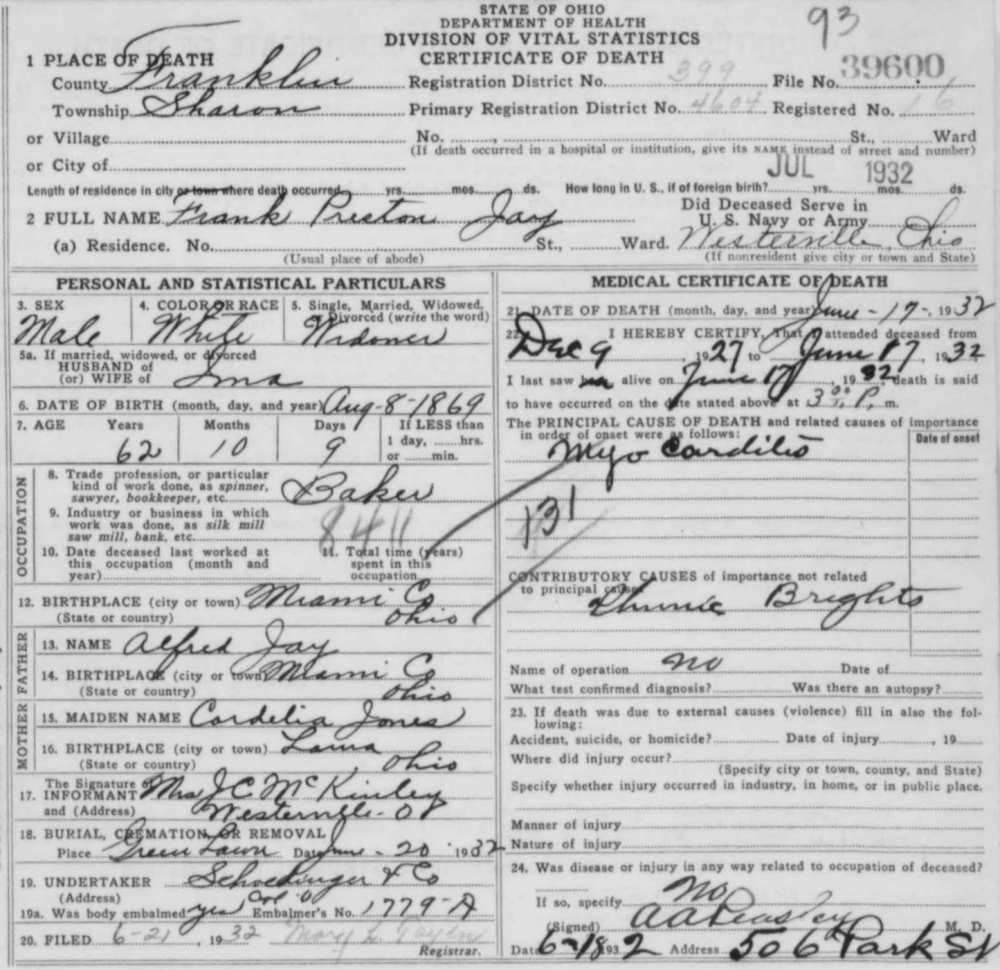 STATE OF OHIO
DEPARTMENT OF HEALTH
DIVISION OF VITAL STATISTICS
CERTIFICATE OF DEATH
93
1 PLACE OF DEATH
County Franklin Registration District No. 399 File No. 39600
Township Sharon Primary Registration District No. 4604 Registered No. 16
or Village No. , St., Ward
(If death occurred in a hospital or institution, give its NAME instead of street and number)
or City of
JUL 1932
Length of residence in city or town where death occurred yrs. mos. ds. How long in U. S., if of foreign birth? yrs. mos. ds.
2 FULL NAME Frank Preston Jay Did Deceased Serve in U. S. Navy or Army
(a) Residence. No. St., Ward. Westerville, Ohio
(Usual place of abode) (If nonresident give city or town and State)
PERSONAL AND STATISTICAL PARTICULARS
3. SEX Male
4. COLOR OR RACE White
5. Single, Married, Widowed, or Divorced (write the word) Widower
5a. If married, widowed, or divorced
HUSBAND of
(or) WIFE of Ima
6. DATE OF BIRTH (month, day, and year) Aug-8-1869
7. AGE Years Months Days If LESS than
62 10 9 1 day, hrs.
or min.
OCCUPATION
8. Trade profession, or particular
kind of work done, as spinner,
sawyer, bookkeeper, etc. Baker
9. Industry or business in which
work was done, as silk mill
saw mill, bank, etc. 8411
10. Date deceased last worked at
this occupation (month and
year)
11. Total time (years)
spent in this
occupation
12. BIRTHPLACE (city or town) Miami Co
(State or country) Ohio
FATHER
13. NAME Alfred Jay
14. BIRTHPLACE (city or town) Miami Co
(State or country) Ohio
MOTHER
15. MAIDEN NAME Cordelia Jones
16. BIRTHPLACE (city or town)
(State or country) Ohio
The Signature of
17. INFORMANT Mrs J C McKinley
and (Address) Westerville - O
18. BURIAL, CREMATION, OR REMOVAL
Place Green Lawn Date June - 20 1932
19. UNDERTAKER Schoedinger & Co
(Address) Col O
19a. Was body embalmed yes Embalmer's No. 1779-A
20. FILED 6-21, 1932 Mary L. Taylor
Registrar.
MEDICAL CERTIFICATE OF DEATH
21. DATE OF DEATH (month, day, and year) June - 17 -, 1932
22. I HEREBY CERTIFY, That I attended deceased from
Dec 9, 1927 to June 17, 1932
I last saw alive on June 17 1932 death is said
to have occurred on the date stated above at 3 00 P. m.
The PRINCIPAL CAUSE OF DEATH and related causes of importance
in order of onset were as follows: Date of onset
Myo Carditis
131
CONTRIBUTORY CAUSES of importance not related
to principal cause:
Chronic Brights
Name of operation no Date of
What test confirmed diagnosis? Was there an autopsy?
23. If death was due to external causes (violence) fill in also the fol-
lowing:
Accident, suicide, or homicide? Date of injury , 19
Where did injury occur?
(Specify city or town, county, and State)
Specify whether injury occurred in industry, in home, or in public place.
Manner of injury
Nature of injury
24. Was disease or injury in any way related to occupation of deceased?
No
If so, specify
(Signed) A A Peasley M. D.
Date 6-18 1932 Address 506 Park St